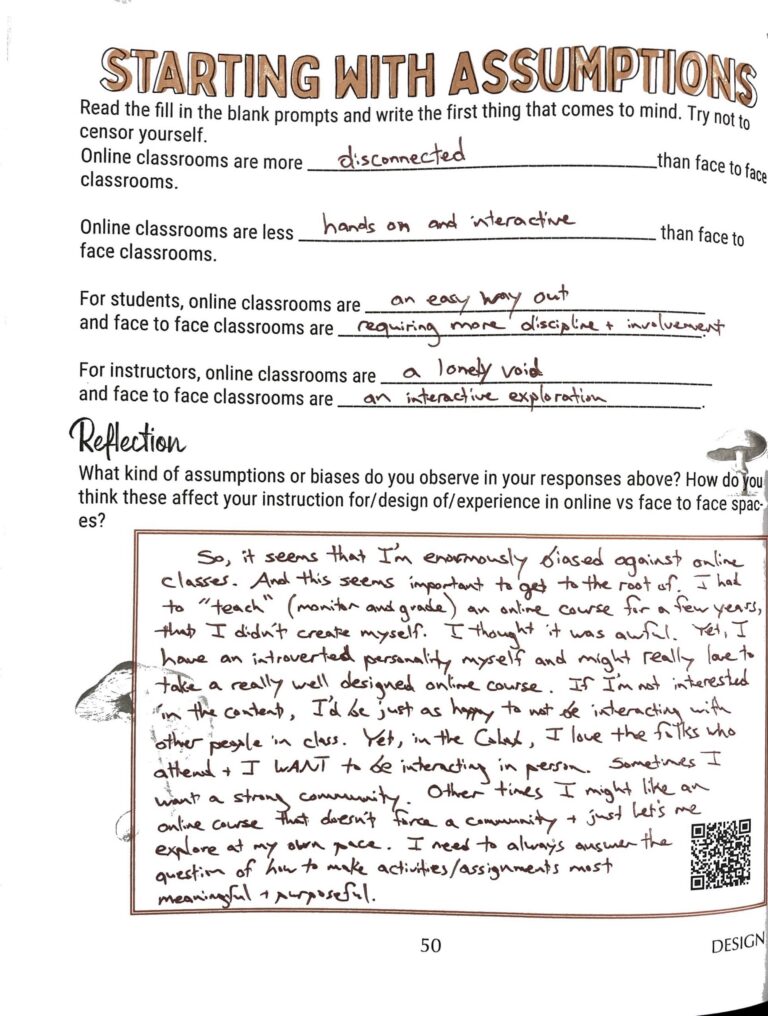 STARTING WITH ASSUMPTIONS
Read the fill in the blank prompts and write the first thing that comes to mind. Try not to
censor yourself.
Online classrooms are more disconnected than face to face
classrooms.
Online classrooms are less hands on and interactive than face to
face classrooms.
For students, online classrooms are an easy way out
and face to face classrooms are requiring more discipline + involvement.
For instructors, online classrooms are a lonely void
and face to face classrooms are an interactive exploration.
Reflection
What kind of assumptions or biases do you observe in your responses above? How do you
think these affect your instruction for/design of/experience in online vs face to face spac-
es?
So, it seems that I'm enormously biased against online
classes. And this seems important to get to the root of. I had
to "teach" (monitor and grade) an online course for a few years,
that I didn't create myself. I thought it was awful. Yet, I
have an introverted personality myself and might really love to
take a really well designed online course. If I'm not interested
in the content, I'd be just as happy to not be interacting with
other people in class. Yet, in the CoLab, I love the folks who
attend + I WANT to be interacting in person. Sometimes I
want a strong community. Other times I might like an
online course that doesn't force a community + just let's me
explore at my own pace. I need to always answer the
question of how to make activities/assignments most
meaningful + purposeful.
50
DESIGN